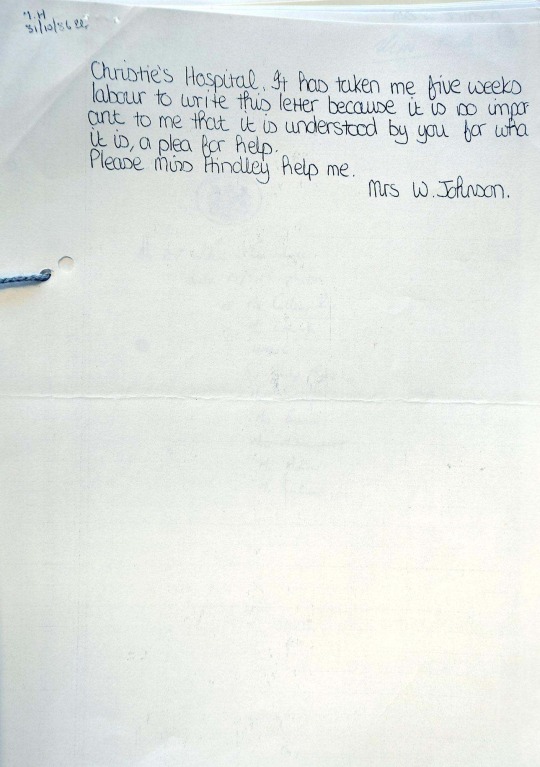 M.H
31/10/86
Christie's Hospital. It has taken me five weeks
labour to write this letter because it is so impor
ant to me that it is understood by you for wha
it is, a plea for help.
Please Miss Hindley help me.
Mrs W. Johnson.